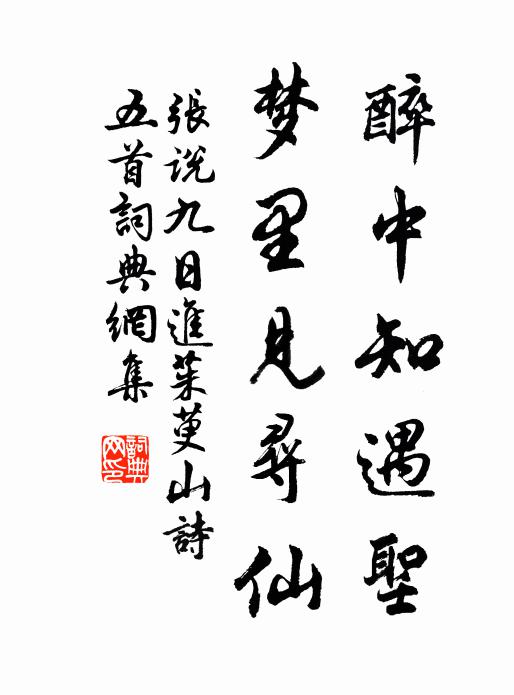 醉中知遇聖
梦里見尋仙
張説九日進茱萸山詩
五首詞典網集
詞典
网印